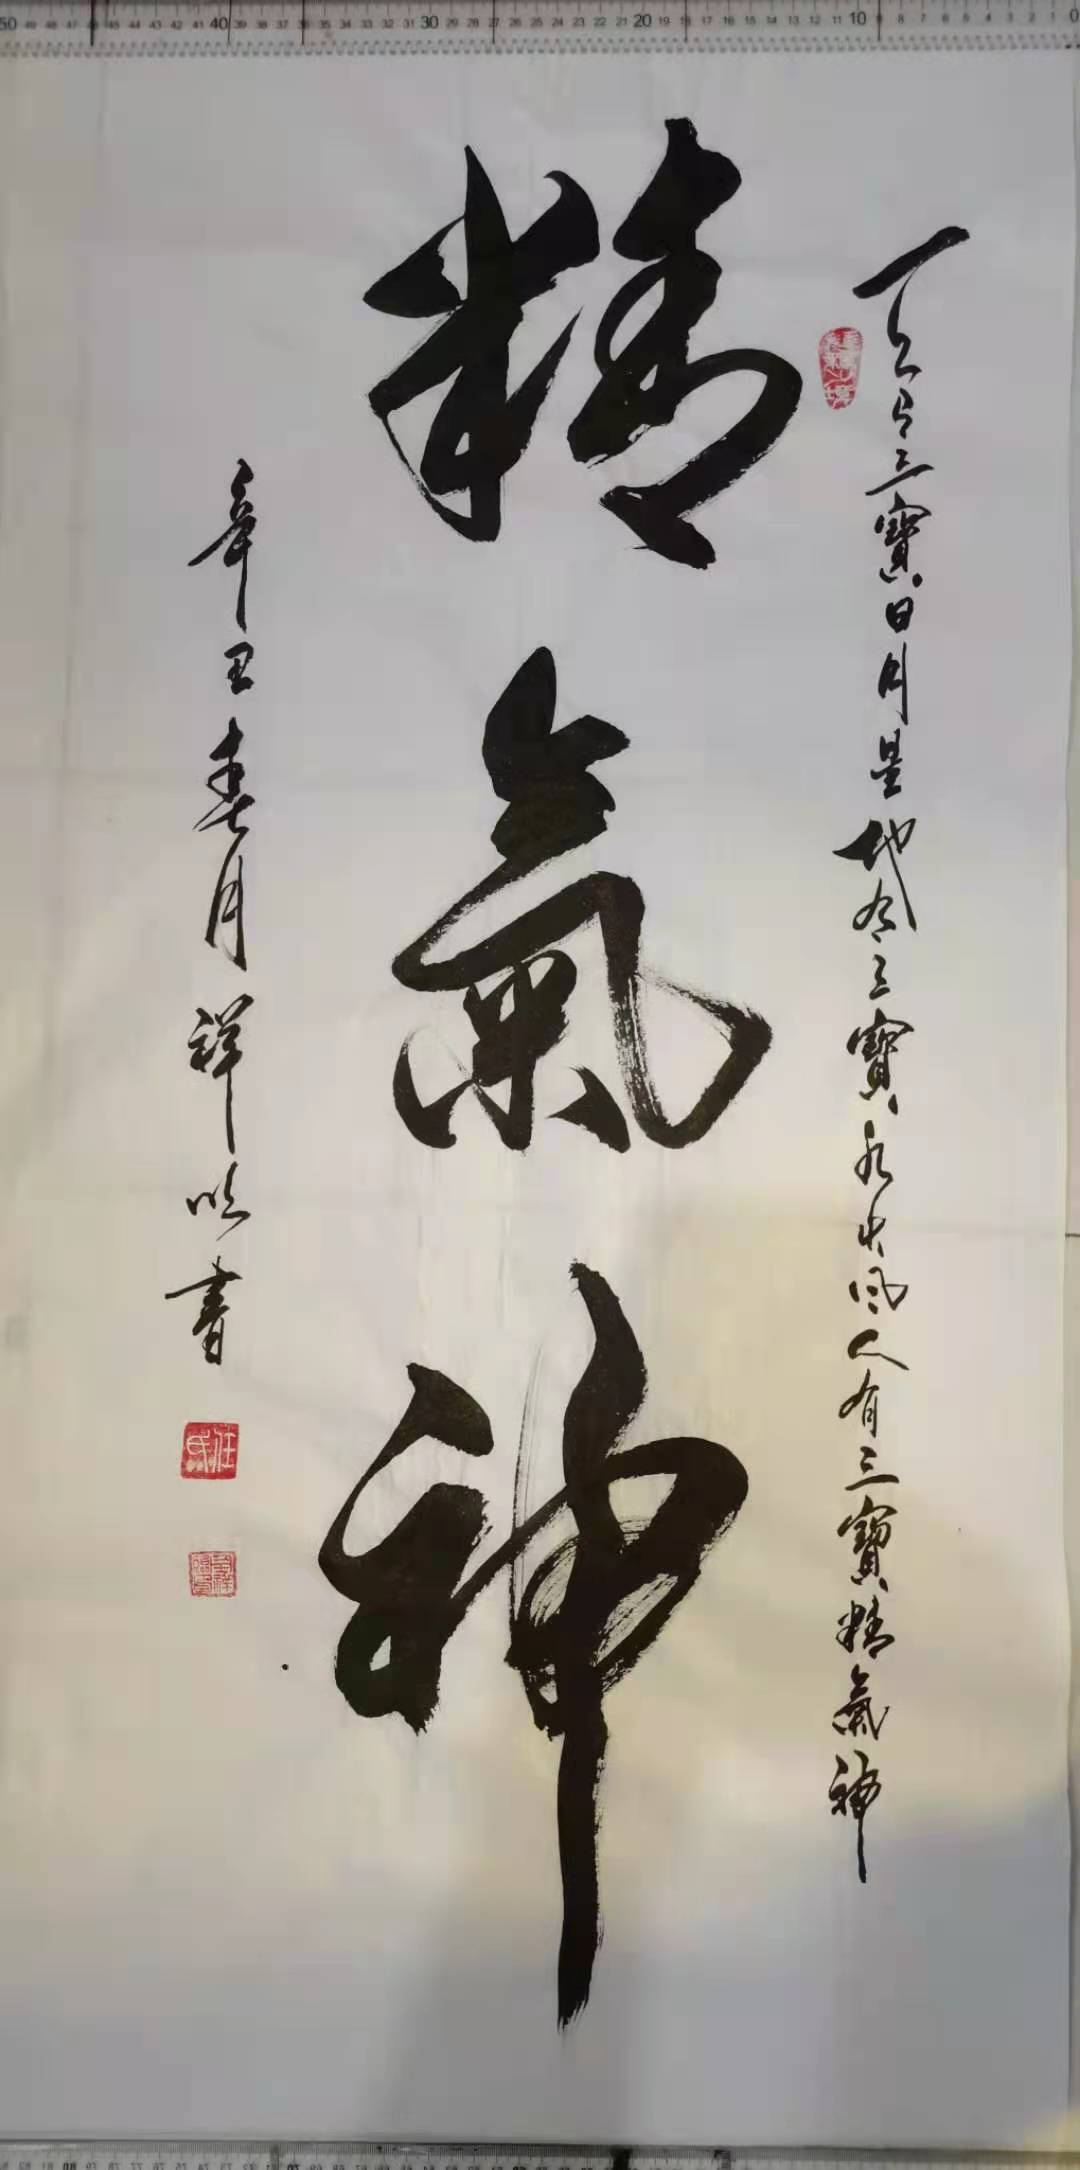 天有三寶日月星地有三寶水火风人有三寶精氣神
精氣神
辛丑春月祥皓書